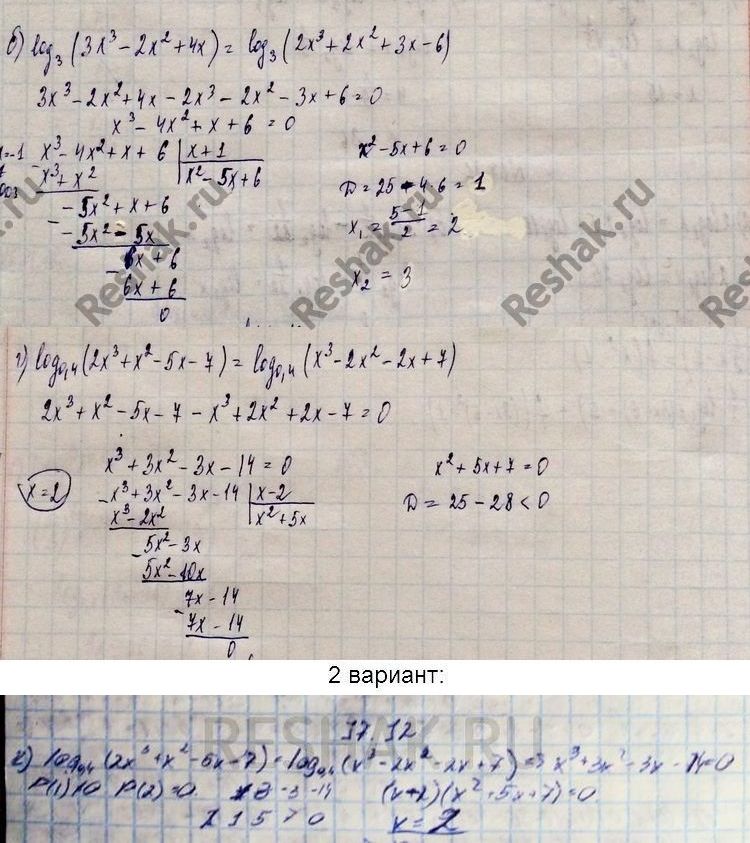 б) log₃(3x³ - 2x² + 4x) = log₃(2x³ + 2x² + 3x - 6)
3x³ - 2x² + 4x - 2x³ - 2x² - 3x + 6 = 0
x³ - 4x² + x + 6 = 0
x=-1 x³ - 4x² + x + 6 | x + 1
x³ + x² | x² - 5x + 6
- 5x² + x + 6
- 5x² - 5x
6x + 6
6x + 6
0
x² - 5x + 6 = 0
D = 25 - 4·6 = 1
x₁ = (5-1)/2 = 2
x₂ = 3
г) log₀,₄(2x³ + x² - 5x - 7) = log₀,₄(x³ - 2x² - 2x + 7)
2x³ + x² - 5x - 7 - x³ + 2x² + 2x - 7 = 0
x³ + 3x² - 3x - 14 = 0
x = 2 x³ + 3x² - 3x - 14 | x - 2
x³ - 2x² | x² + 5x
5x² - 3x
5x² - 10x
7x - 14
7x - 14
0
x² + 5x + 7 = 0
D = 25 - 28 < 0
2 вариант:
RESHAK.RU
17.12
г) log₀,₄(2x³ + x² - 5x - 7) = log₀,₄(x³ - 2x² - 2x + 7) => x³ + 3x² - 3x - 14 = 0
P(2) = 0 -3 -14 (x-2)(x² + 5x + 7) = 0
2 1 5 7 0 x = 2
Reshak.ru
Reshak.ru
Reshak.ru
Reshak.ru
Reshak.ru
Reshak.ru